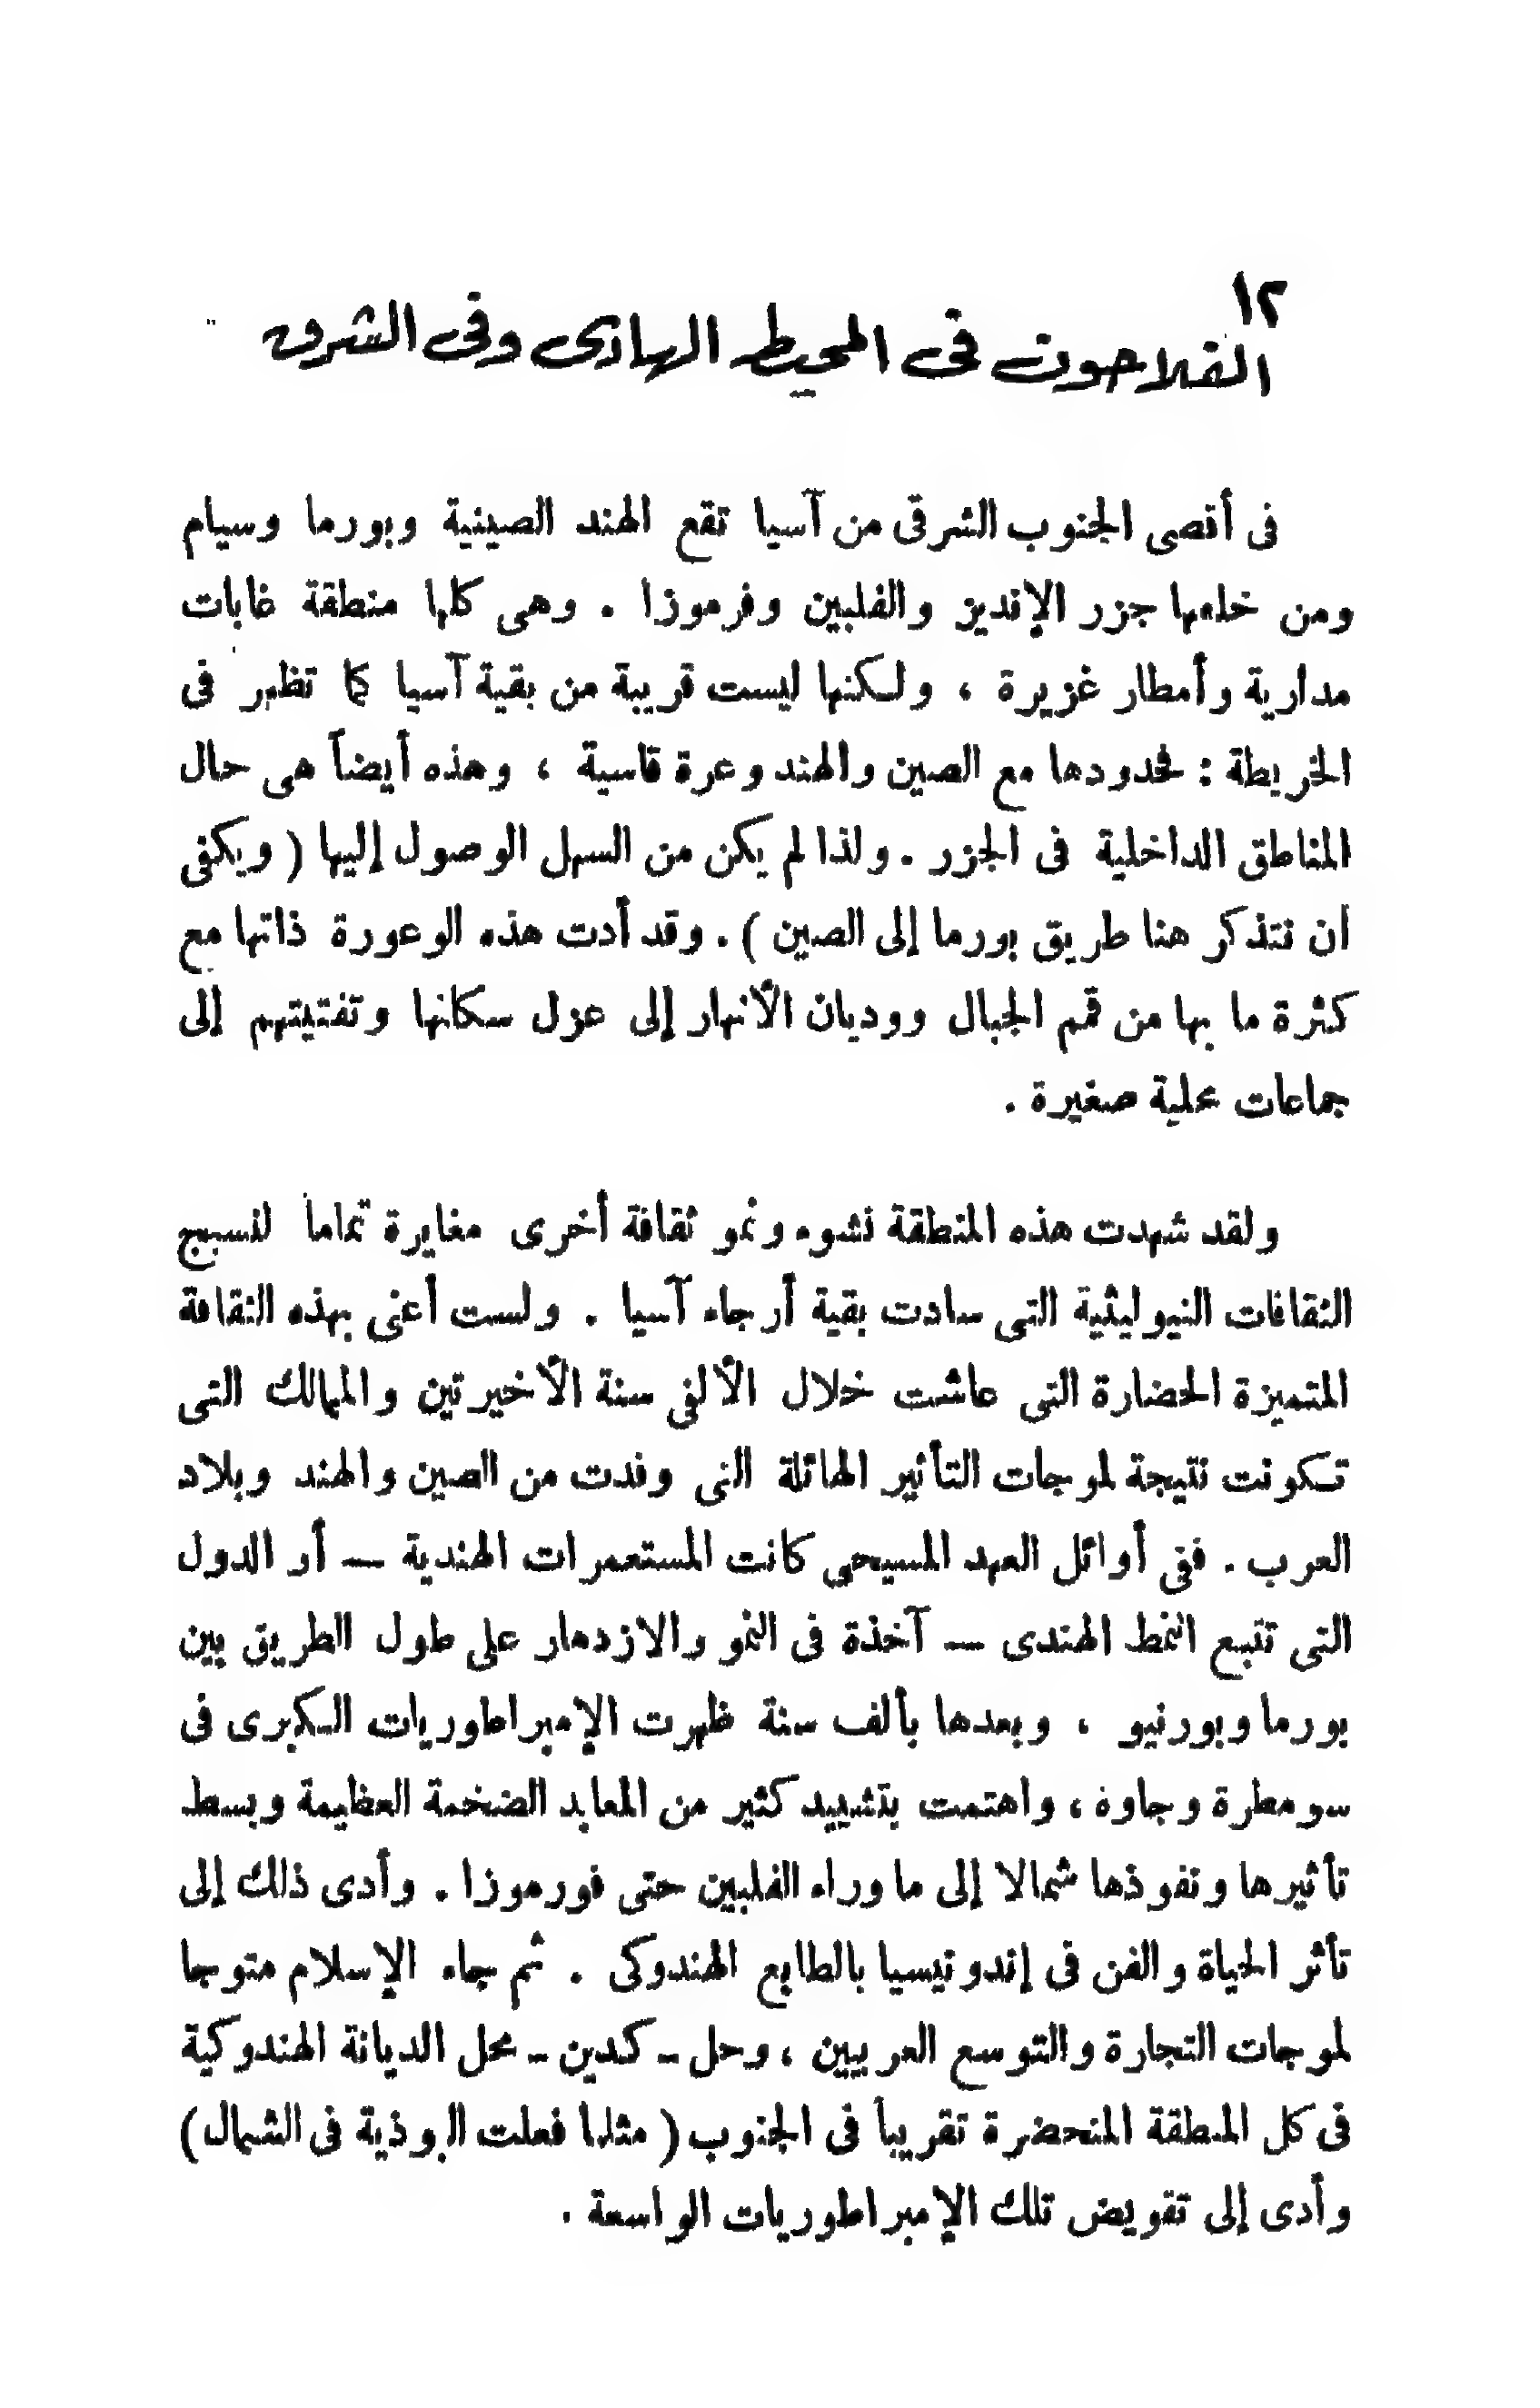 ١٢
الفلاحون فى المحيط الهادى وفى الشرق
فى أقصى الجنوب الشرقى من آسيا تقع الهند الصينية وبورما وسيام
ومن خلفها جزر الإنديز والفلبين وفرموزا . وهى كلها منطقة غابات
مدارية وأمطار غزيرة ، ولكنها ليست قريبة من بقية آسيا كما تظهر فى
الخريطة : فحدودها مع الصين والهند وعرة قاسية ، وهذه أيضاً هى حال
المناطق الداخلية فى الجزر . ولذا لم يكن من السهل الوصول إليها ( ويكفى
أن نتذكر هنا طريق بورما إلى الصين ) . وقد أدت هذه الوعورة ذاتها مع
كثرة ما بها من قمم الجبال ووديان الأنهار إلى عزل سكانها وتفتيتهم إلى
جماعات محلية صغيرة .
ولقد شهدت هذه المنطقة نشوء ونمو ثقافة أخرى مغايرة تماما لنسيج
الثقافات النيوليثية التى سادت بقية أرجاء آسيا . ولست أعنى بهذه الثقافة
المتميزة الحضارة التى عاشت خلال الألفى سنة الأخيرتين والممالك التى
تكونت نتيجة لموجات التأثير الهائلة التى وفدت من الصين والهند وبلاد
العرب . ففى أوائل العهد المسيحى كانت المستعمرات الهندية — أو الدول
التى تتبع النمط الهندى — آخذة فى النمو والازدهار على طول الطريق بين
بورما وبورنيو ، وبعدها بألف سنة ظهرت الإمبراطوريات الكبرى فى
سومطرة وجاوه ، واهتمت بتشييد كثير من المعابد الضخمة العظيمة وبسط
تأثيرها ونفوذها شمالا إلى ما وراء الفلبين حتى فورموزا . وأدى ذلك إلى
تأثر الحياة والفن فى إندونيسيا بالطابع الهندوكى . ثم جاء الإسلام متوجا
لموجات التجارة والتوسع العربيين ، وحل - كدين - محل الديانة الهندوكية
فى كل المنطقة المتحضرة تقريباً فى الجنوب ( مثلما فعلت البوذية فى الشمال )
وأدى إلى تقويض تلك الإمبراطوريات الواسعة .